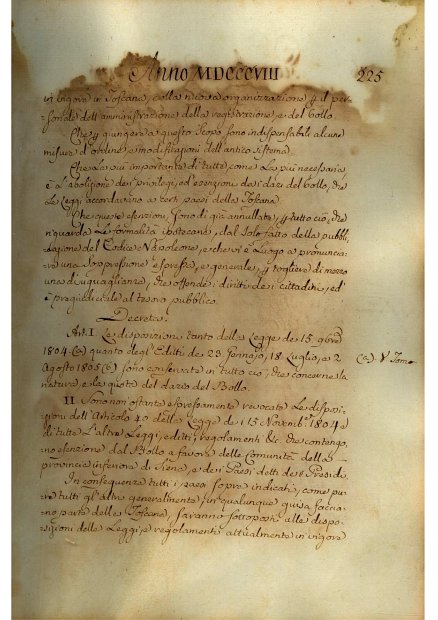 Anno MDCCCVIII
225
in vigore in Toscana, colla nuova organizzazione p il per-
sonale dell'amministrazione della registrazione, e del bollo.
Che p giungere a questo scopo sono indispensabili alcune
misure d'ordine, e modificazioni dell'antico sistema.
Che la più importante di tutte, come la più necessaria
è l'abolizione dei privilegi, ed esenzioni dei dazi del bollo, che
le Leggi accordavano a certi paesi della Toscana.
Che queste esenzioni, sono di già annullate, p tutto ciò, che
riguarda le formalità ipotecarie, dal solo fatto della pubbli-
cazione del Codice Napoleone, e che vi è luogo a pronunzia-
re una soppressione espressa, e generale, p togliere di mezzo
una disuguaglianza, che offende i diritti dei cittadini, ed
è pregiudiciale al tesoro pubblico.
Decreta.
Art. I. Le disposizioni tanto della Legge de 15 9bre
1804 (a) quanto degl'Editti de 23 Gennajo, 18 Luglio, e 2
(a). V. Tomo
Agosto 1805 (b) sono conservate in tutto ciò, che concerne la
natura, e la quota del dazio del Bollo.
II Sono non ostante espressamente revocate le dispo-
sizioni dell'Articolo 40 della Legge de i 15 Novemb. 1804 e
di tutte l'altre Leggi, editti, regolamenti &c. che contengo-
no esenzione dal Bollo a favore delle Comunità della
provincia inferiore di Siena, e dei Paesi detti dei Presidi.
In conseguenza tutti i paesi sopra indicati, come pu-
re tutti gl'altri generalmente, in qualunque guisa faccia-
no parte della Toscana, saranno sottoposti alle dispo-
sizioni delle Leggi, e regolamenti attualmente in vigore